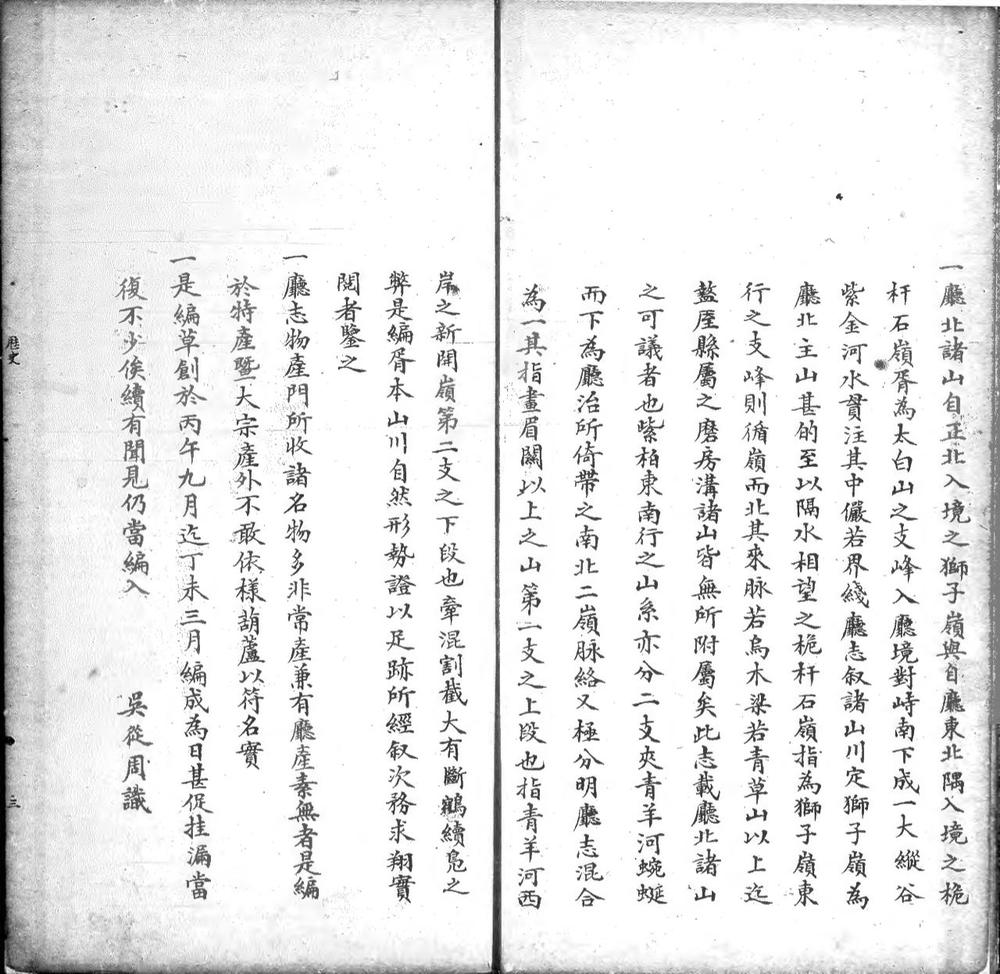 一廳北諸山自正北入境之獅子嶺與自廳東北隅入境之桅
杆石嶺胥為太白山之支峰入廳境對峙南下成一大縱谷
紫金河水貫注其中儼若界綫廳志叙諸山川定獅子嶺為
廳北主山甚的至以隔水相望之桅杆石嶺指為獅子嶺東
行之支峰則循嶺而北其來脉若烏木梁若青草山以上迄
盩厔縣屬之磨房溝諸山皆無所附屬矣此志載廳北諸山
之可議者也紫柏東南行之山系亦分二支夾青羊河蜿蜒
而下為廳治所倚帶之南北二嶺脉絡又極分明廳志混合
為一其指畫眉關以上之山第一支之上段也指青羊河西
岸之新開嶺第二支之下段也牽混割截大有斷鶴續鳧之
弊是編胥本山川自然形勢證以足跡所經叙次務求翔實
閱者鑒之
一廳志物產門所收諸名物多非常產兼有廳產素無者是編
於特產暨大宗產外不敢依樣葫蘆以符名實
一是編草創於丙午九月迄丁未三月編成為日甚促挂漏當
復不少俟續有聞見仍當編入 吳從周識
歷史
三